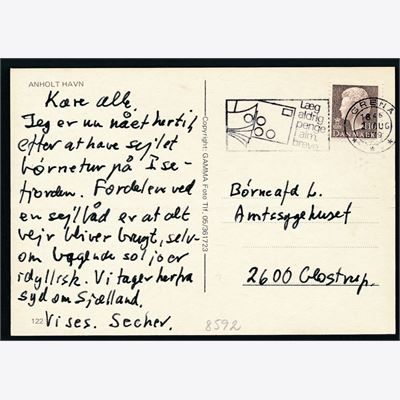 ANHOLT HAVN
Kære alle.
Jeg er nu nået hertil
efter at have sejlet
børnetur på Ise-
fjorden. Fordelen ved
en sejlbåd er at alt
vejr bliver brugt, selv-
om bagende sol jo er
idyllisk. Vi tager herfra
syd om Sjælland.
Vi ses. Secher.
122
Copyright: GAMMA Foto Tlf. 05/361723
Læg
aldrig
penge
i alm.
breve
GRENÅ
DANMARK
Børneafd L.
Amtssygehuset
2600 Glostrup.
8592